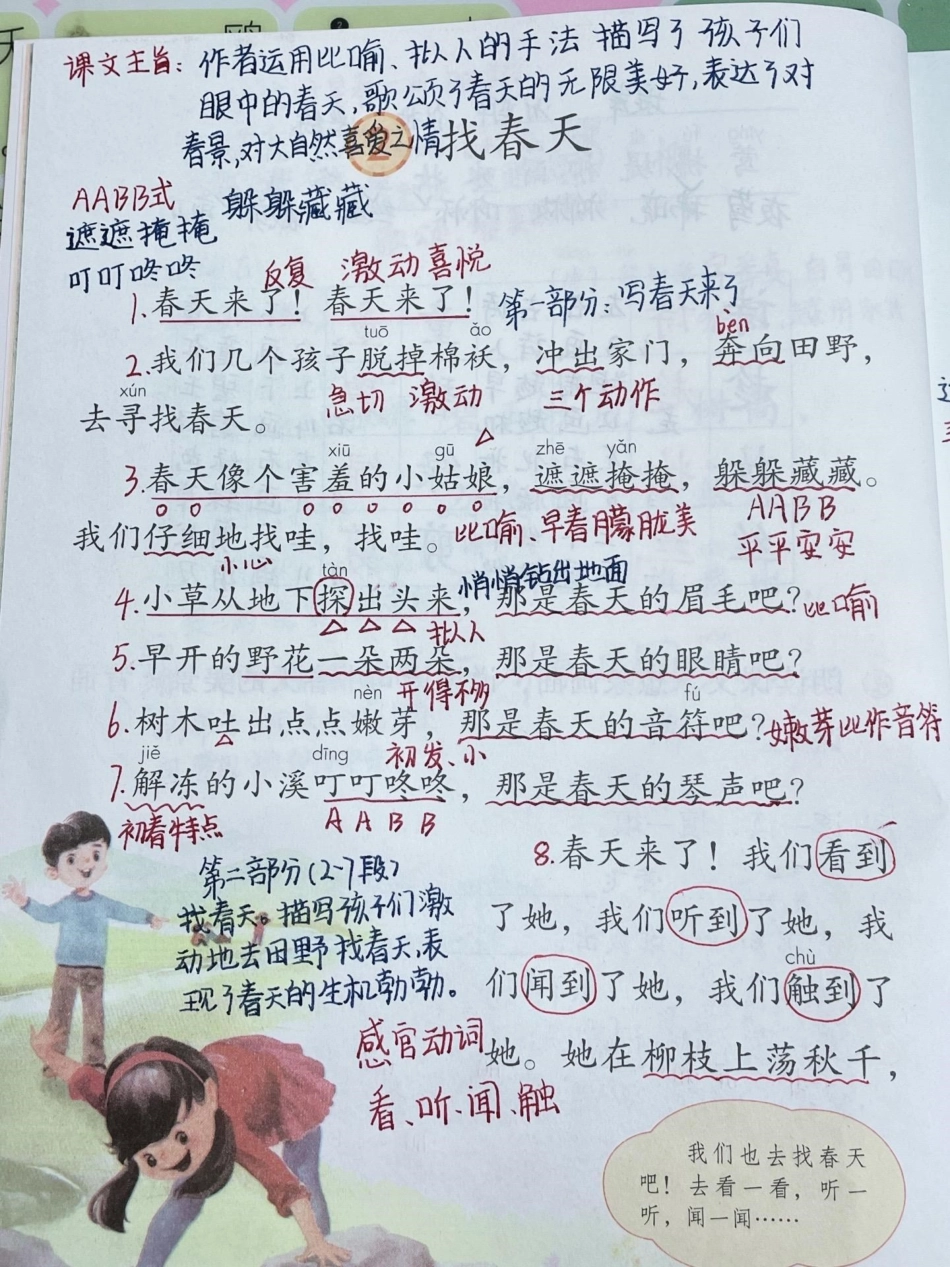 课文主旨：作者运用比喻、拟人的手法 描写了孩子们
眼中的春天，歌颂了春天的无限美好，表达了对
春景，对大自然喜爱之情
2 找春天
AABB式 躲躲藏藏
遮遮掩掩
叮叮咚咚
反复 激动喜悦
1.春天来了！春天来了！
第一部分，写春天来了
bèn
tuō ǎo
2.我们几个孩子脱掉棉袄，冲出家门，奔向田野，
xún
急切 激动 三个动作
去寻找春天。
xiū gū zhē yǎn
3.春天像个害羞的小姑娘，遮遮掩掩，躲躲藏藏。
AABB
平平安安
比喻、早春朦胧美
我们仔细地找哇，找哇。
小心
tàn
悄悄钻出地面
4.小草从地下探出头来，那是春天的眉毛吧？比喻
拟人
5.早开的野花一朵两朵，那是春天的眼睛吧？
开得不多
nèn fú
6.树木吐出点点嫩芽，那是春天的音符吧？嫩芽比作音符
初发、小
jiě dīng
7.解冻的小溪叮叮咚咚，那是春天的琴声吧？
初春特点
A A B B
第二部分（2-7段）
找春天。描写孩子们激
动地去田野找春天，表
现了春天的生机勃勃。
8.春天来了！我们看到
了她，我们听到了她，我
chù
们闻到了她，我们触到了
她。她在柳枝上荡秋千，
感官动词
看、听、闻、触
我们也去找春天
吧！去看一看，听一
听，闻一闻……